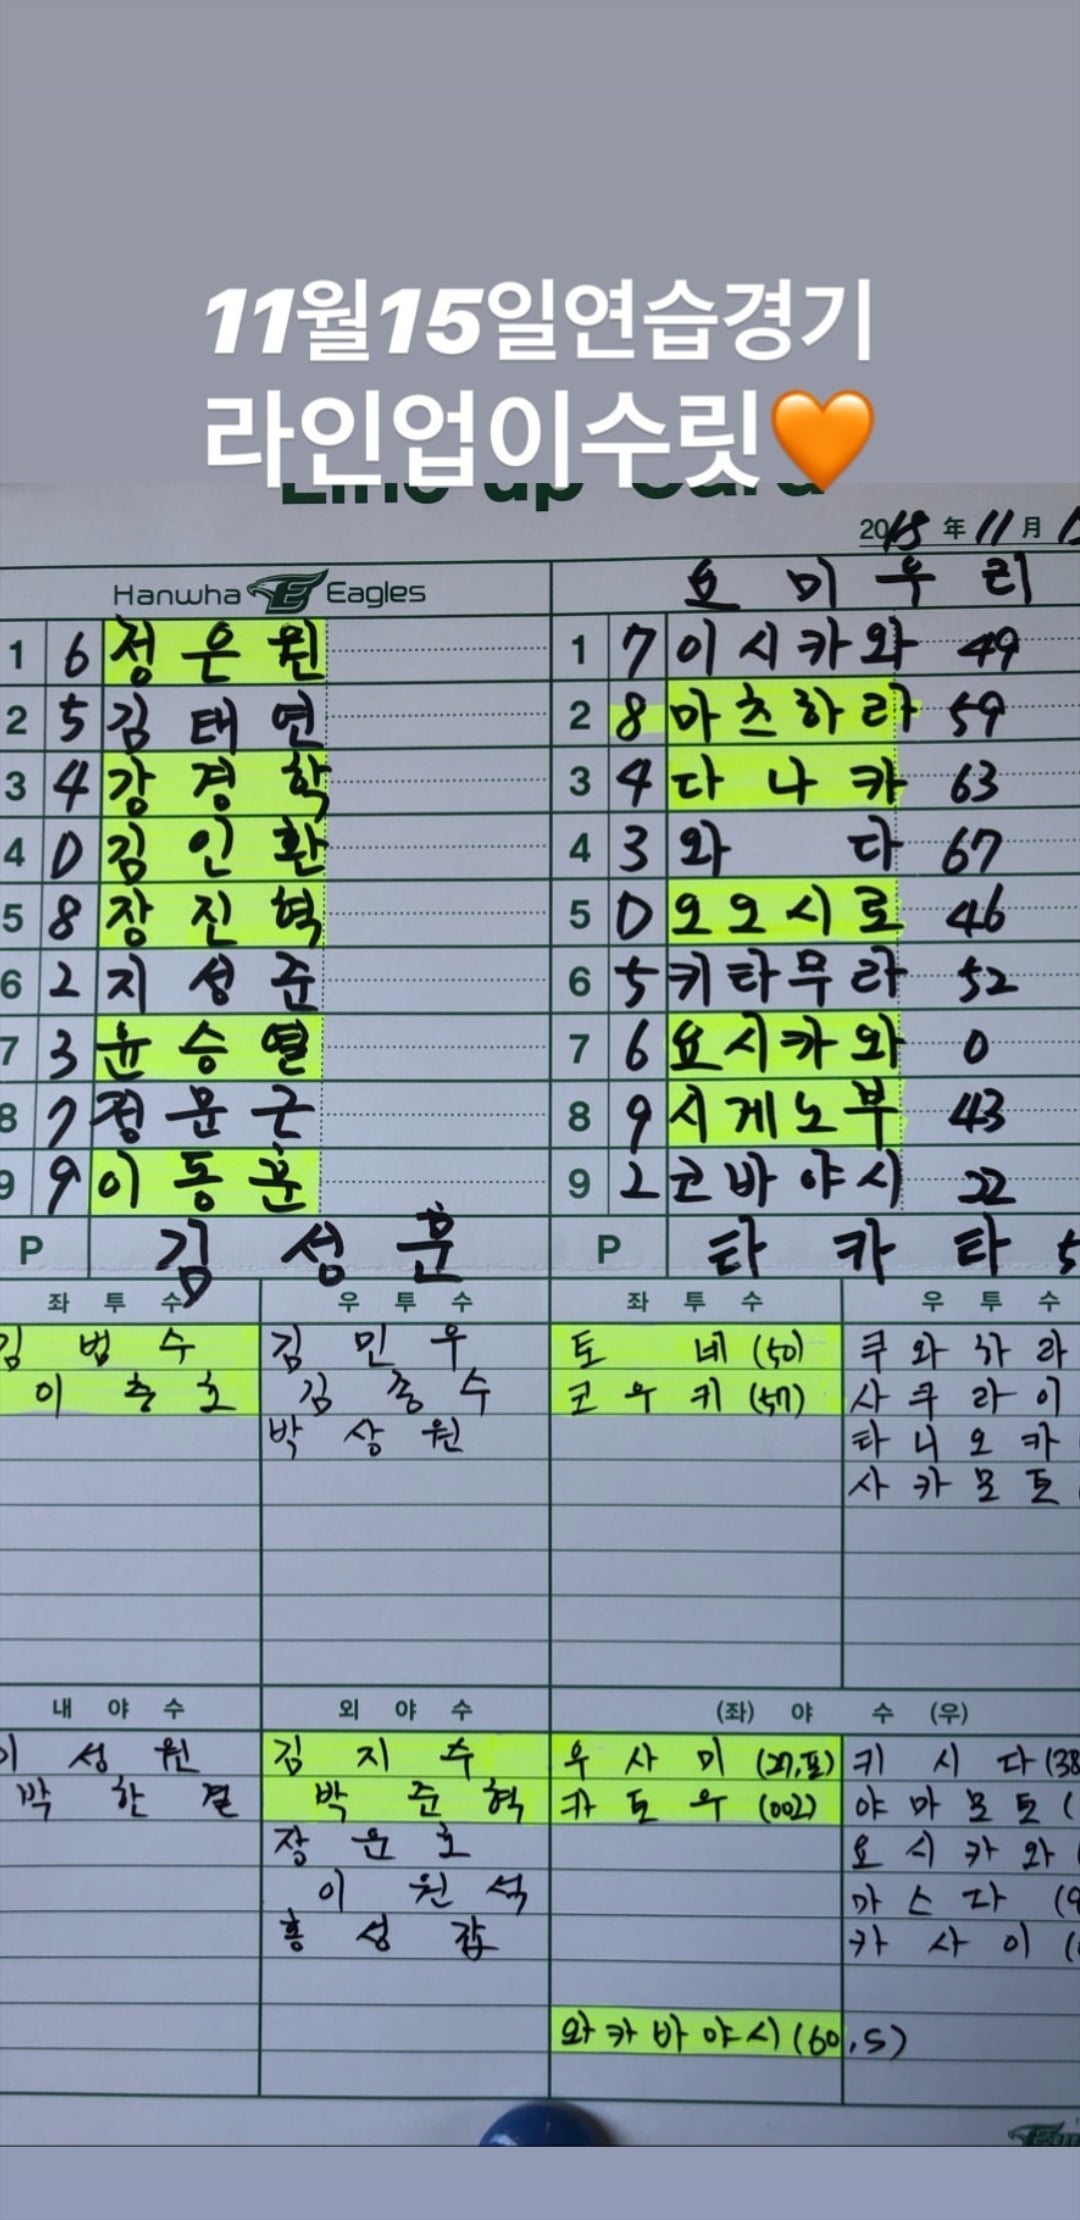 11월15일연습경기
라인업이수릿🧡
Line-up Card
2018 年 11 月 15
Hanwha Eagles
요미우리
1 6 정은원
2 5 김태연
3 4 강경학
4 D 김인환
5 8 장진혁
6 2 지성준
7 3 윤승열
8 7 정문근
9 9 이동훈
P 김성훈
1 7 이시카와 49
2 8 마츠하라 59
3 4 다나카 63
4 3 와다 67
5 D 오오시로 46
6 5 키타무라 52
7 6 요시카와 0
8 9 시게노부 43
9 2 코바야시 22
P 타카타 5
좌투수
김범수
이충호
우투수
김민우
김종수
박상원
좌투수
토네 (50)
코우키 (57)
우투수
쿠와하라
사쿠라이
타니오카
사카모토
내야수
이성원
박한결
외야수
김지수
박준혁
장운호
이원석
홍성갑
(좌) 야 수 (우)
우사미 (27,포)
카토우 (002)
와카바야시 (60,S)
키시다 (38
야마모토 (
요시카와
마스다 (9
카사이 (